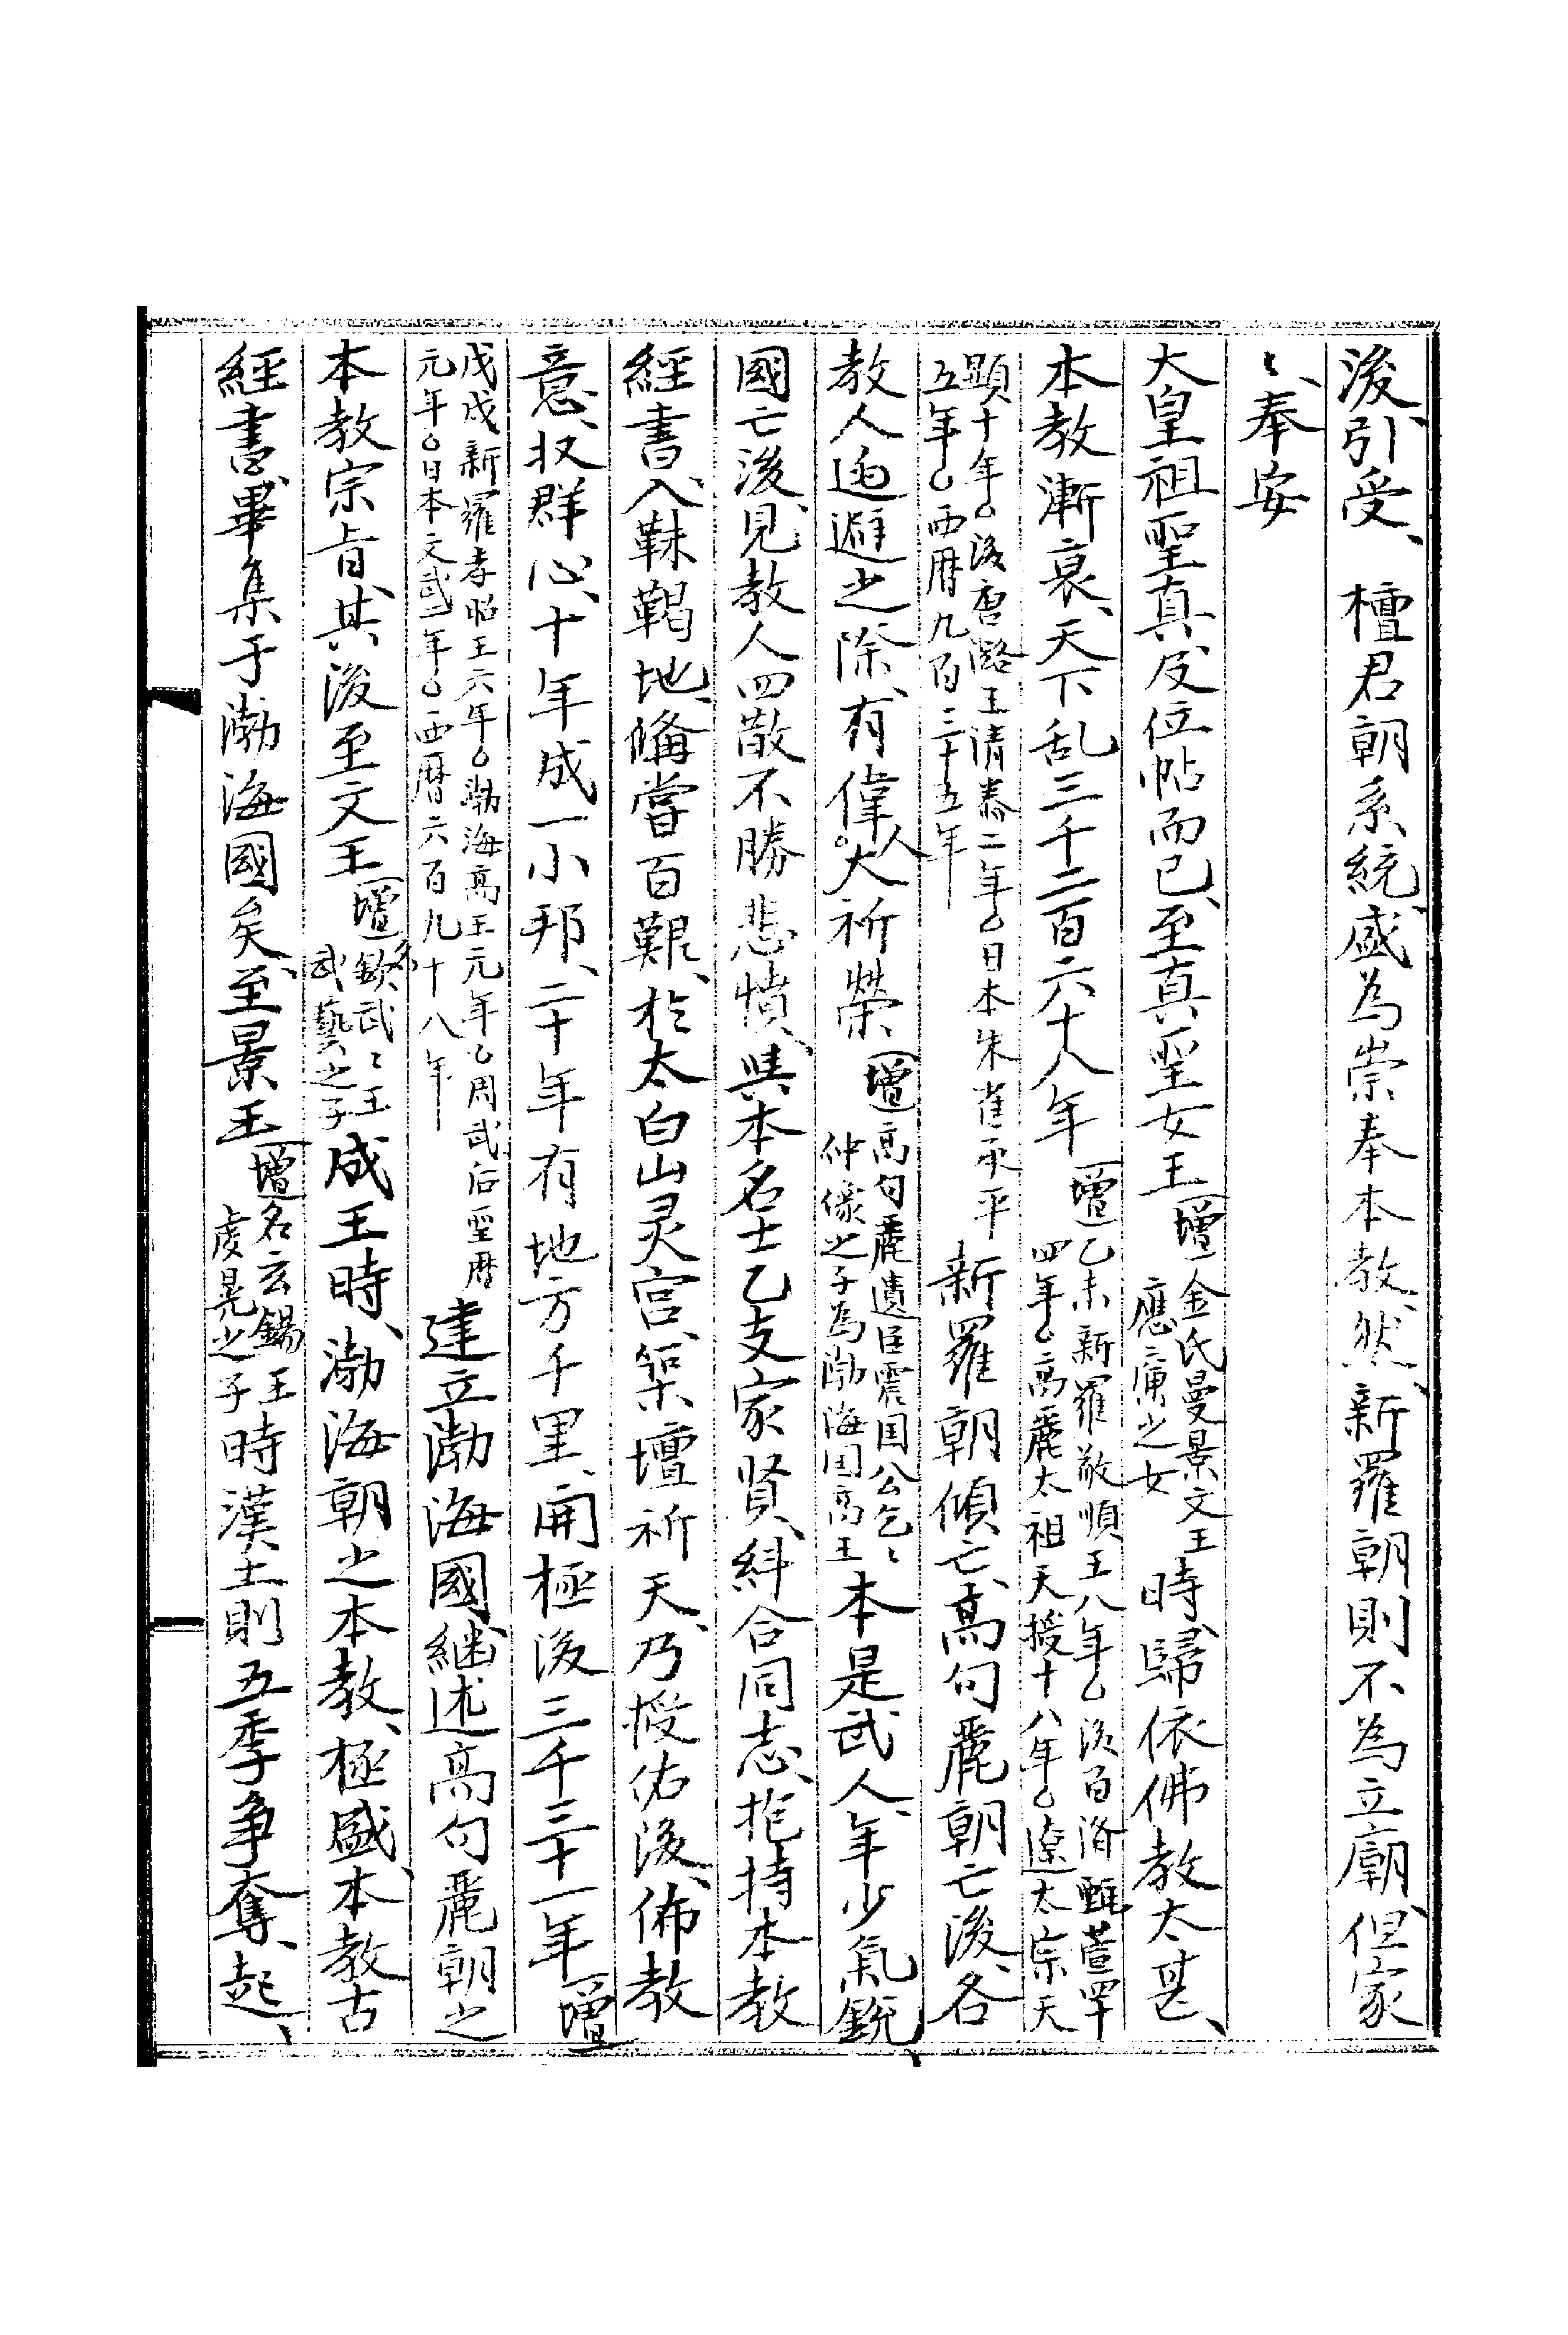 後、引受、　檀君朝系統、盛為崇奉本教、然、新羅朝則不為立廟、但家
〻、奉安
大皇祖聖真及位帖而已、至真聖女王【增】金氏曼景文王應廉之女時、歸依佛教太甚、
本教漸衰、天下乱三千二百六十八年【增】乙未新羅敬順王八年○後百濟甄萱四年○高麗太祖天授十八年○遼太宗天
顯十年○後唐潞王清泰二年○日本朱雀承平五年○西曆九百三十五年新羅朝傾亡、高句麗朝亡後、各
教人逃避之際、有偉人大祚榮、【增】高句麗遺臣震国公乞〻仲像之子為渤海国高王本是武人、年少氣銳、
國亡後、見教人四散不勝悲憤、與本名士乙支家賢、糾合同志、抱持本教
經書、入靺鞨地、俻嘗百艱、於太白山灵宮、築壇祈天、乃授佑後、佈教
意、収群心、十年成一小邦、二十年有地方千里、開極後三千三十一年【增】
戊戌新羅孝昭王六年○渤海高王元年○周武后聖曆元年○日本文武二年○西曆六百九十八年建立渤海國、継述高句麗朝之
本教宗旨、其後至文王【增】名欽武〻王武藝之子成王時、渤海朝之本教、極盛、本教古
經書、畢集于渤海國矣、至景王【增】名玄錫王虔晃之子時漢土則五季爭奪、起、